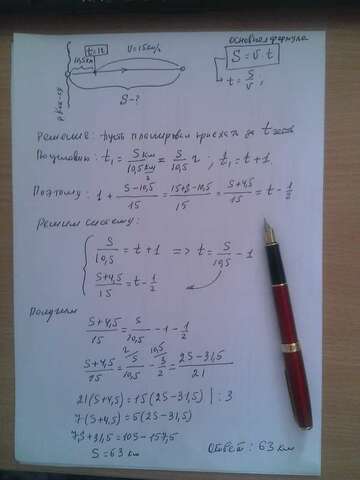 основная формула
t=1ч V=15км/ч S=V·t
10,5км
t=S/V;
S-?
Решение: пусть планировал приехать за t
По условию: t₁=S км/10,5 км/ч=S/10,5 ч; t₁=t+1
Поэтому: 1+(S-10,5)/15=(15+S-10,5)/15=(S+4,5)/15=t-1/2
Решим систему:
{S/10,5=t+1 => t=S/10,5-1
(S+4,5)/15=t-1/2
Получим
(S+4,5)/15=S/10,5-1-1/2
(S+4,5)/15=S/10,5-3/2=(2S-31,5)/21
21(S+4,5)=15(2S-31,5) |:3
7(S+4,5)=5(2S-31,5)
7S+31,5=10S-157,5
S=63км Ответ: 63 км